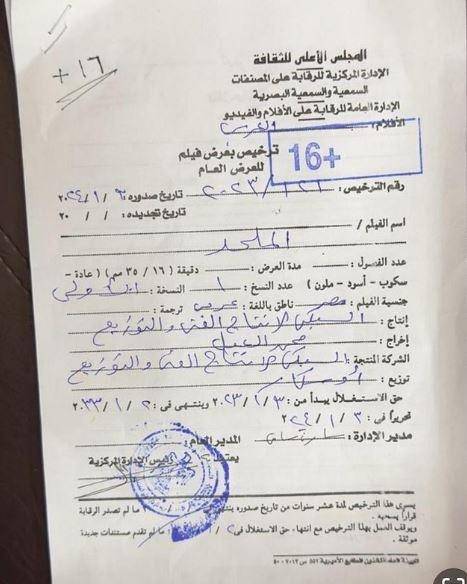 + ١٦
المجلس الأعلى للثقافة
الإدارة المركزية للرقابة على المصنفات
السمعية والسمعية البصرية
الإدارة العامة للرقابة على الأفلام والفيديو
الأفلام : العربية
16+
ترخيص بعرض فيلم
للعرض العام
رقم الترخيص : ١٢١ / ٢٠٢٣ تاريخ صدوره ٣ / ١ / ٢٠٢٤
تاريخ تجديده : / / ٢٠
اسم الفيلم /
الملحد
عدد الفصول : مدة العرض : دقيقة ( ١٦ / ٣٥ مم ) عادة -
سكوب - أسود - ملون ) عدد النسخ : ١ النسخة : الأولى
جنسية الفيلم : مصر ناطق باللغة : عربى ترجمة :
إنتاج : السبكى لإنتاج الفنى والتوزيع
إخراج : محمد العدل
الشركة المنتجة : السبكى لإنتاج الفنى والتوزيع
توزيع : أوسكار
حق الاستغلال يبدأ من ٣ / ١ / ٢٠٢٣ وينتهى فى : ٢ / ١ / ٢٠٣٣
تحريراً فى : ٣ / ١ / ٢٠٢٤
مدير الإدارة : المدير العام :
يعتمد رئيس الإدارة المركزية
يسرى هذا الترخيص لمدة عشر سنوات من تاريخ صدوره ما لم تصدر الرقابة
قراراً بسحبه .
ويوقف العمل بهذا الترخيص مع انتهاء حق الاستغلال فى ما لم تقدم مستندات جديدة
موثقة .
الهيئة العامة لشئون المطابع الأميرية